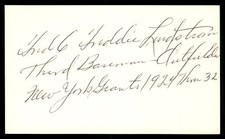 Fred C Freddie Lindstrom
Third Baseman - Outfielder
New York Giants 1924 thru 32